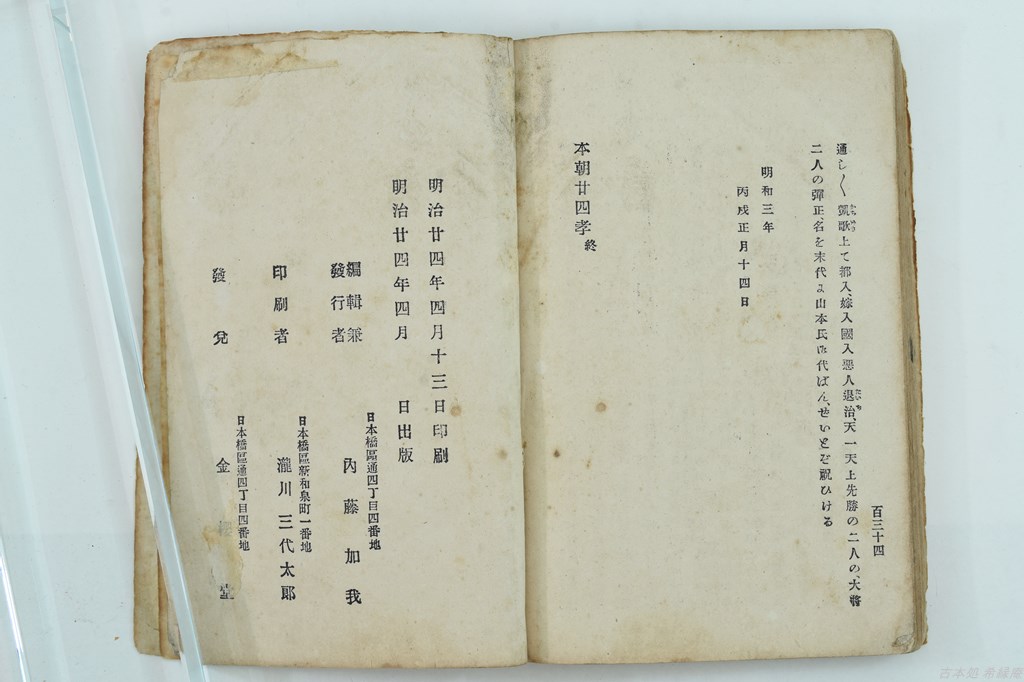 百三十四
通し〱凱歌上て都入、嫁入國入惡人退治、天一天上先勝の二人の、大將
二人の彈正、名を末代に山本氏
代ばん、ぜいとぞ祝ひける
明和三年
丙戌正月十四日
本朝廿四孝 終
明治廿四年四月十三日印刷
明治廿四年四月 日出版
編輯兼
發行者
日本橋區通四丁目四番地
內藤加我
印刷者
日本橋區新和泉町一番地
瀧川三代太郎
發兌
日本橋區通四丁目四番地
金櫻堂
古本処 希緑庵